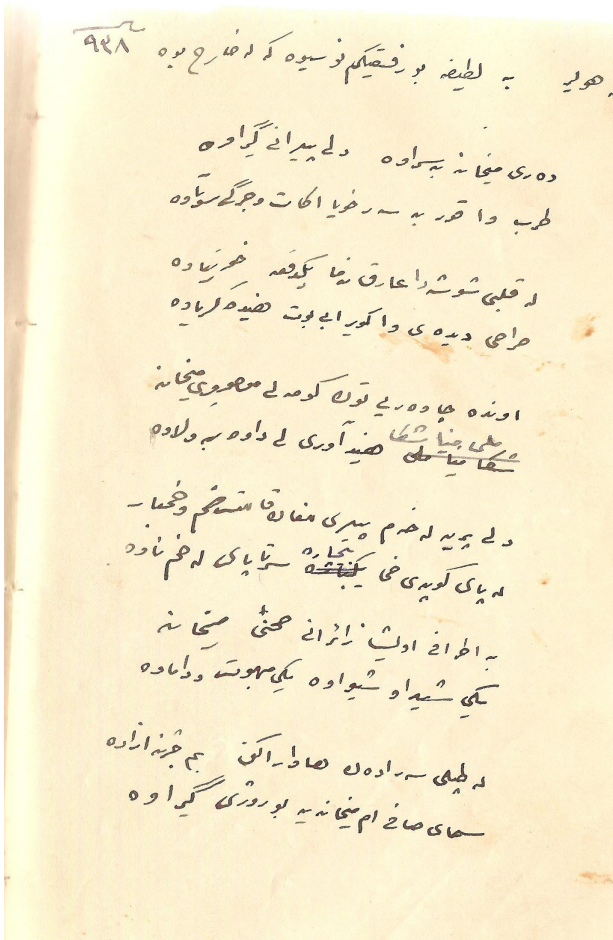 ٩٣٨
هولیر به لطیفه بو رفیقیکم نوسیوه که له خارج بوه
ده‌ری میخانه به‌سراوه دلی پیرانی گیراوه
طرب وا قور به سه‌ر خویا اکات وجرگی سوتاوه
له قلبی شوشه‌دا عارق نه‌ما یکدفعه خوینیاوه
صراحی دیده‌ی وا کویر ابی بوت هینده گریاوه
اونده چاوه‌ریی توه کومه‌لی میخانه
ملی مینا شکا هیند آوری لی داوه به‌ولاوه
دلی پریه له غه‌م پیری مغان قامتی خم و غمبار
له پای کوپه‌ی خما سرتاپای له غم ناوه
به اطرافی اولیشا زائرانی صحنی میخانه
یکی شیداو شیواوه یکی مبهوت و داماوه
له طپلی سه‌ر اده‌ن هاوار اکن بم حزنه ازاده
سمای صافی ام میخانه‌یه بو روژی گیراوه